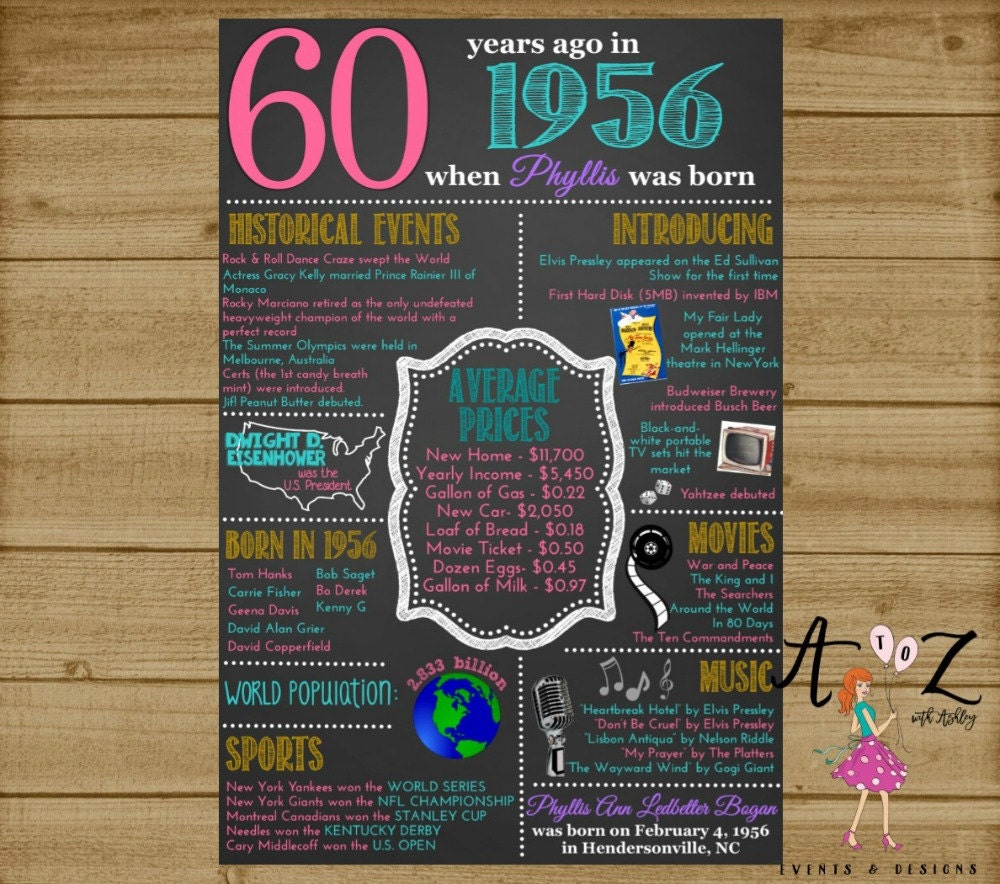 60
years ago in
1956
when Phyllis was born
HISTORICAL EVENTS
Rock & Roll Dance Craze swept the World
Actress Gracy Kelly married Prince Rainier III of
Monaco
Rocky Marciano retired as the only undefeated
heavyweight champion of the world with a
perfect record
The Summer Olympics were held in
Melbourne, Australia
Certs (the 1st candy breath
mint) were introduced.
Jif! Peanut Butter debuted.
DWIGHT D.
EISENHOWER
was the
U.S. President
BORN IN 1956
Tom Hanks
Carrie Fisher
Geena Davis
David Alan Grier
David Copperfield
Bob Saget
Bo Derek
Kenny G
WORLD POPULATION:
2.833 billion
SPORTS
New York Yankees won the WORLD SERIES
New York Giants won the NFL CHAMPIONSHIP
Montreal Canadians won the STANLEY CUP
Needles won the KENTUCKY DERBY
Cary Middlecoff won the U.S. OPEN
AVERAGE
PRICES
New Home - $11,700
Yearly Income - $5,450
Gallon of Gas - $0.22
New Car- $2,050
Loaf of Bread - $0.18
Movie Ticket - $0.50
Dozen Eggs- $0.45
Gallon of Milk - $0.97
INTRODUCING
Elvis Pressley appeared on the Ed Sullivan
Show for the first time
First Hard Disk (5MB) invented by IBM
My Fair Lady
opened at the
Mark Hellinger
theatre in NewYork
Budweiser Brewery
introduced Busch Beer
Black-and-
white portable
TV sets hit the
market
Yahtzee debuted
MOVIES
War and Peace
The King and I
The Searchers
Around the World
In 80 Days
The Ten Commandments
MUSIC
"Heartbreak Hotel" by Elvis Pressley
"Don't Be Cruel" by Elvis Pressley
"Lisbon Antiqua" by Nelson Riddle
"My Prayer" by The Platters
"The Wayward Wind" by Gogi Giant
Phyllis Ann Ledbetter Bogan
was born on February 4, 1956
in Hendersonville, NC
A TO Z
with Ashley
EVENTS & DESIGNS